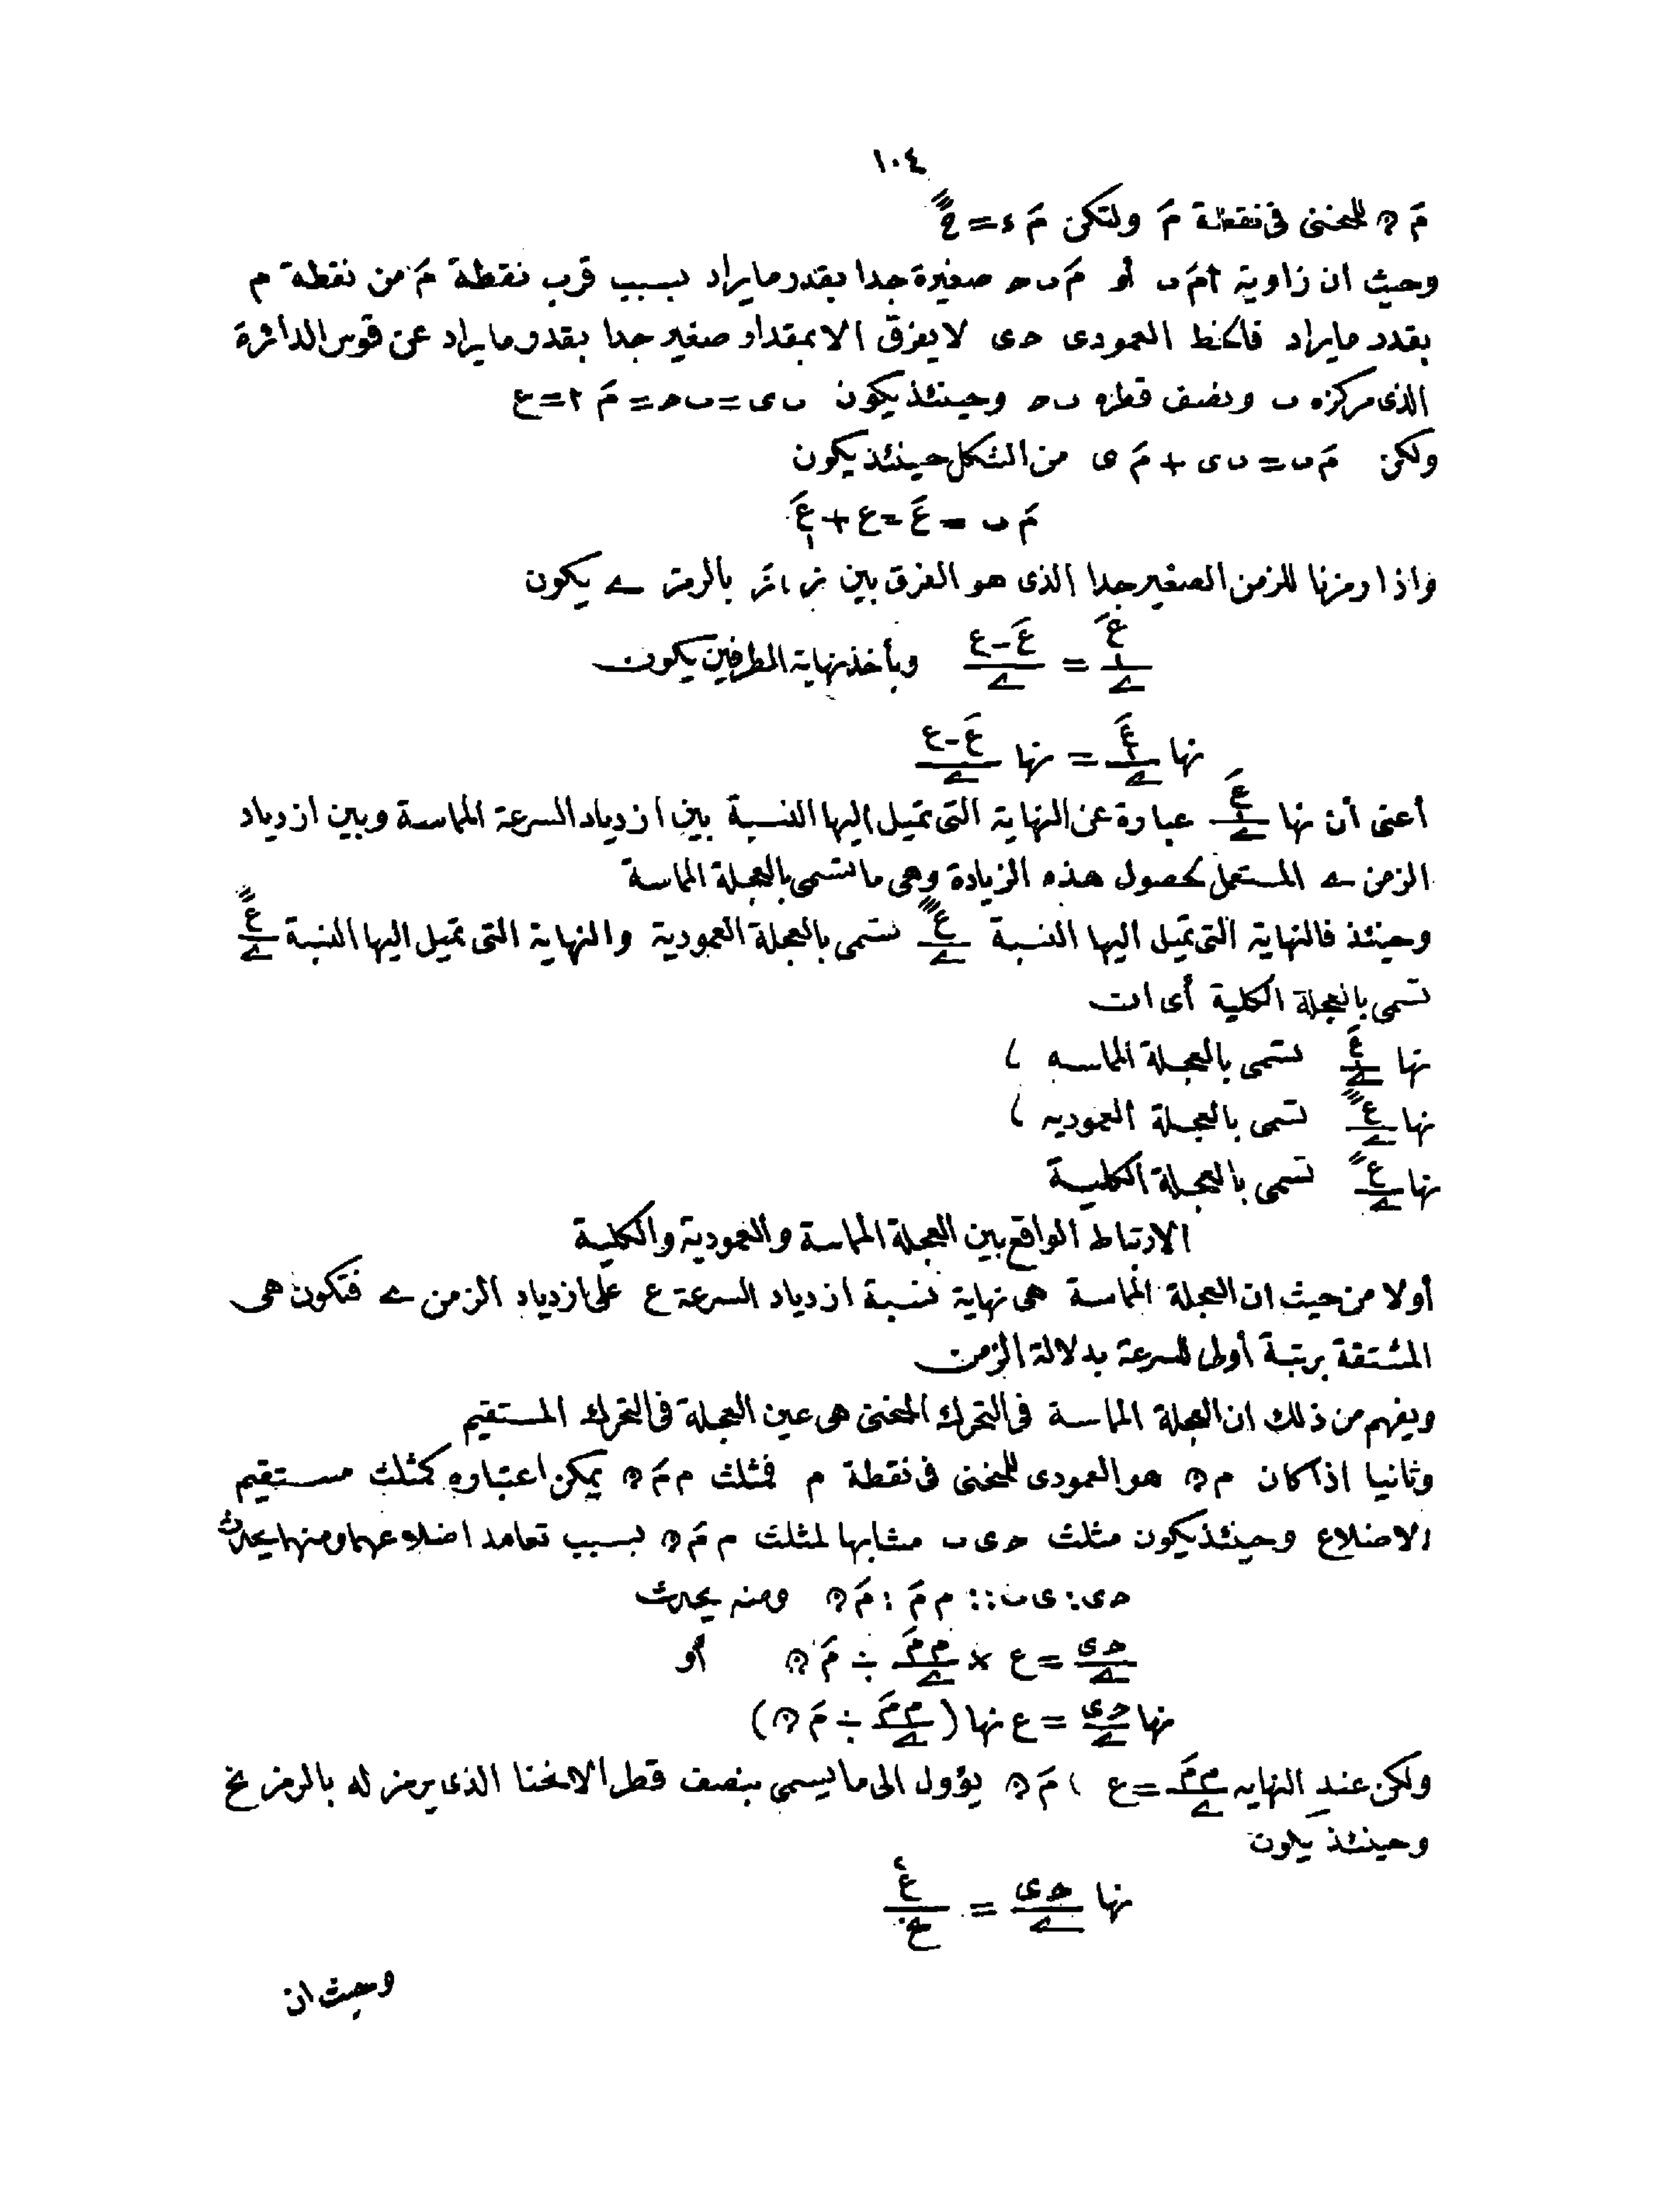 ١٠٤
مَ ھ للمنحنى فى نقطة مَ ولتكن مَ ء = عً
وحيث ان زاوية ٢مَ ں أو مَ ں حـ صغيرة جدا بقدر مايراد بسبب قرب نقطة مَ من نقطة م
بقدر مايراد فالخط العمودى حـ ى لا يفرق الا بمقدار صغير جدا بقدر مايراد عن قوس الدائرة
الذى مركزه ں ونصف قطره ں حـ وحينئذ يكون ں ى = ں حـ = مَ ٢ = ع
ولكن مَ ں = ں ى + مَ ى من الشكل حينئذ يكون
مَ ں = عَ = ع + عَ١
واذا رمزنا للزمن الصغير جدا الذى هو الفرق بين ز ، زَ بالرمز ے يكون
عَ١/ے = (عَ - ع)/ے وبأخذ نهاية الطرفين يكون
نها عَ١/ے = نها (عَ - ع)/ے
أعنى أن نها عَ١/ے عبارة عن النهاية التى تميل اليها النسبة بين ازدياد السرعة المماسة وبين ازدياد
الزمن ے المستعمل لحصول هذه الزيادة وهى ما تسمى بالعجلة المماسة
وحينئذ فالنهاية التى تميل اليها النسبة ع‴/ے تسمى بالعجلة العمودية والنهاية التى تميل اليها النسبة ع″/ے
تسمى بالعجلة الكلية أى ان
نها عَ١/ے تسمى بالعجلة المماسه ،
نها ع‴/ے تسمى بالعجلة العموديه ،
نها ع″/ے تسمى بالعجلة الكلية
الارتباط الواقع بين العجلة المماسة والعمودية والكلية
أولا من حيث ان العجلة المماسة هى نهاية نسبة ازدياد السرعة ع على ازدياد الزمن ے فتكون هى
المشتقة برتبة أولى للسرعة بدلالة الزمن
ويفهم من ذلك ان العجلة المماسة فى التحرك المنحنى هى عين العجلة فى التحرك المستقيم
وثانيا اذا كان م ھ هو العمودى للمنحنى فى نقطة م فمثلث م مَ ھ يمكن اعتباره كمثلث مستقيم
الاضلاع وحينئذ يكون مثلث حـ ى ں مشابها لمثلث م مَ ھ بسبب تعامد اضلاعهما ومنها يحدث
حـ ى : ى ں :: م مَ : مَ ھ ومنه يحدث
حـ ى/ے = ع × م مَ/ے ÷ مَ ھ أو
نها حـ ى/ے = ع نها (م مَ/ے ÷ مَ ھ)
ولكن عند النهايه م مَ/ے = ع ، مَ ھ يؤول الى ما يسمى بنصف قطر الانحنا الذى يرمز له بالرمز نخ
وحينئذ يكون
نها حـ ى/ے = ع٢/نخ
وحيث ان